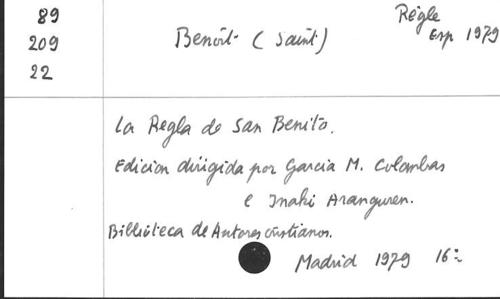 89
209
22
Benoît (Saint)
Règle
Esp 1979
La Regla de San Benito.
Edicion dirigida por Garcia M. Colombas
e Inaki Aranguren.
Biblioteca de Autores cristianos.
Madrid 1979 16: